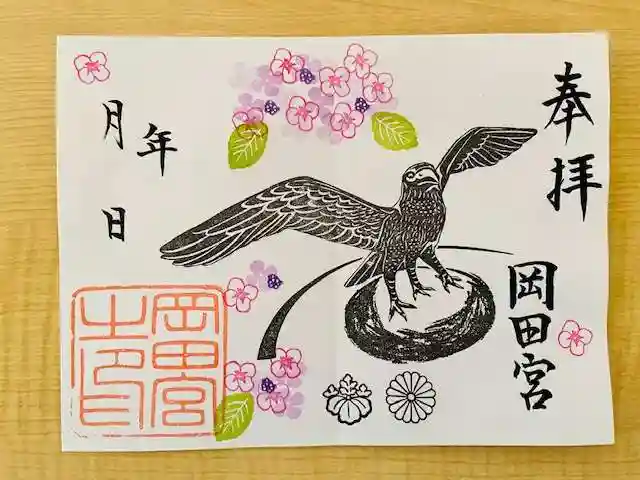 奉拝
岡田宮
年
月
日
岡田宮
之印